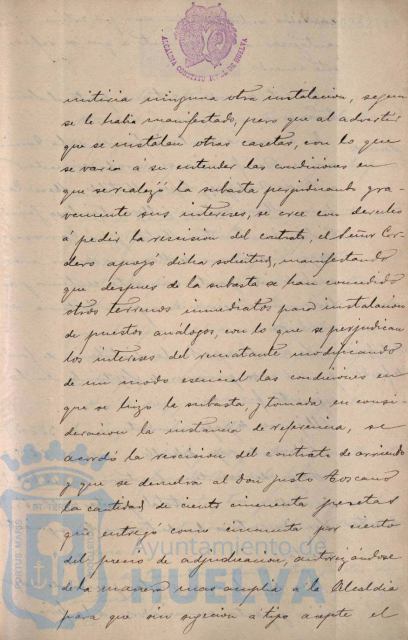 ALCALDIA CONSTITUCIONAL DE HUELVA
mitiria ninguna otra instalacion, segun
se le habia manifestado, pero que al advertir
que se instalan otras casetas, con lo que
se varia á su entender las condiciones en
que se realizó la subasta perjudicando gra-
vemente sus intereses, se cree con derecho
á pedir la rescision del contrato, el Señor Cor-
dero apoyó dicha solicitud, manifestando
que despues de la subasta se han concedido
otros terrenos inmediatos para instalacion
de puestos análogos, con lo que se perjudican
los intereses del rematante modificando
de un modo esencial las condiciones en
que se hizo la subasta, y tomada en consi-
deracion la instancia de referencia, se
acordó la rescision del contrato de arriendo
y que se devuelva al don Justo Toscano
la cantidad de ciento cincuenta pesetas
que entregó como cincuenta por ciento
del precio de adjudicacion, autorizandose
de la manera mas amplia a la Alcaldia
para que sin sujecion a tipo acepte el
PORTUS MARIS
Ayuntamiento de
HUELVA